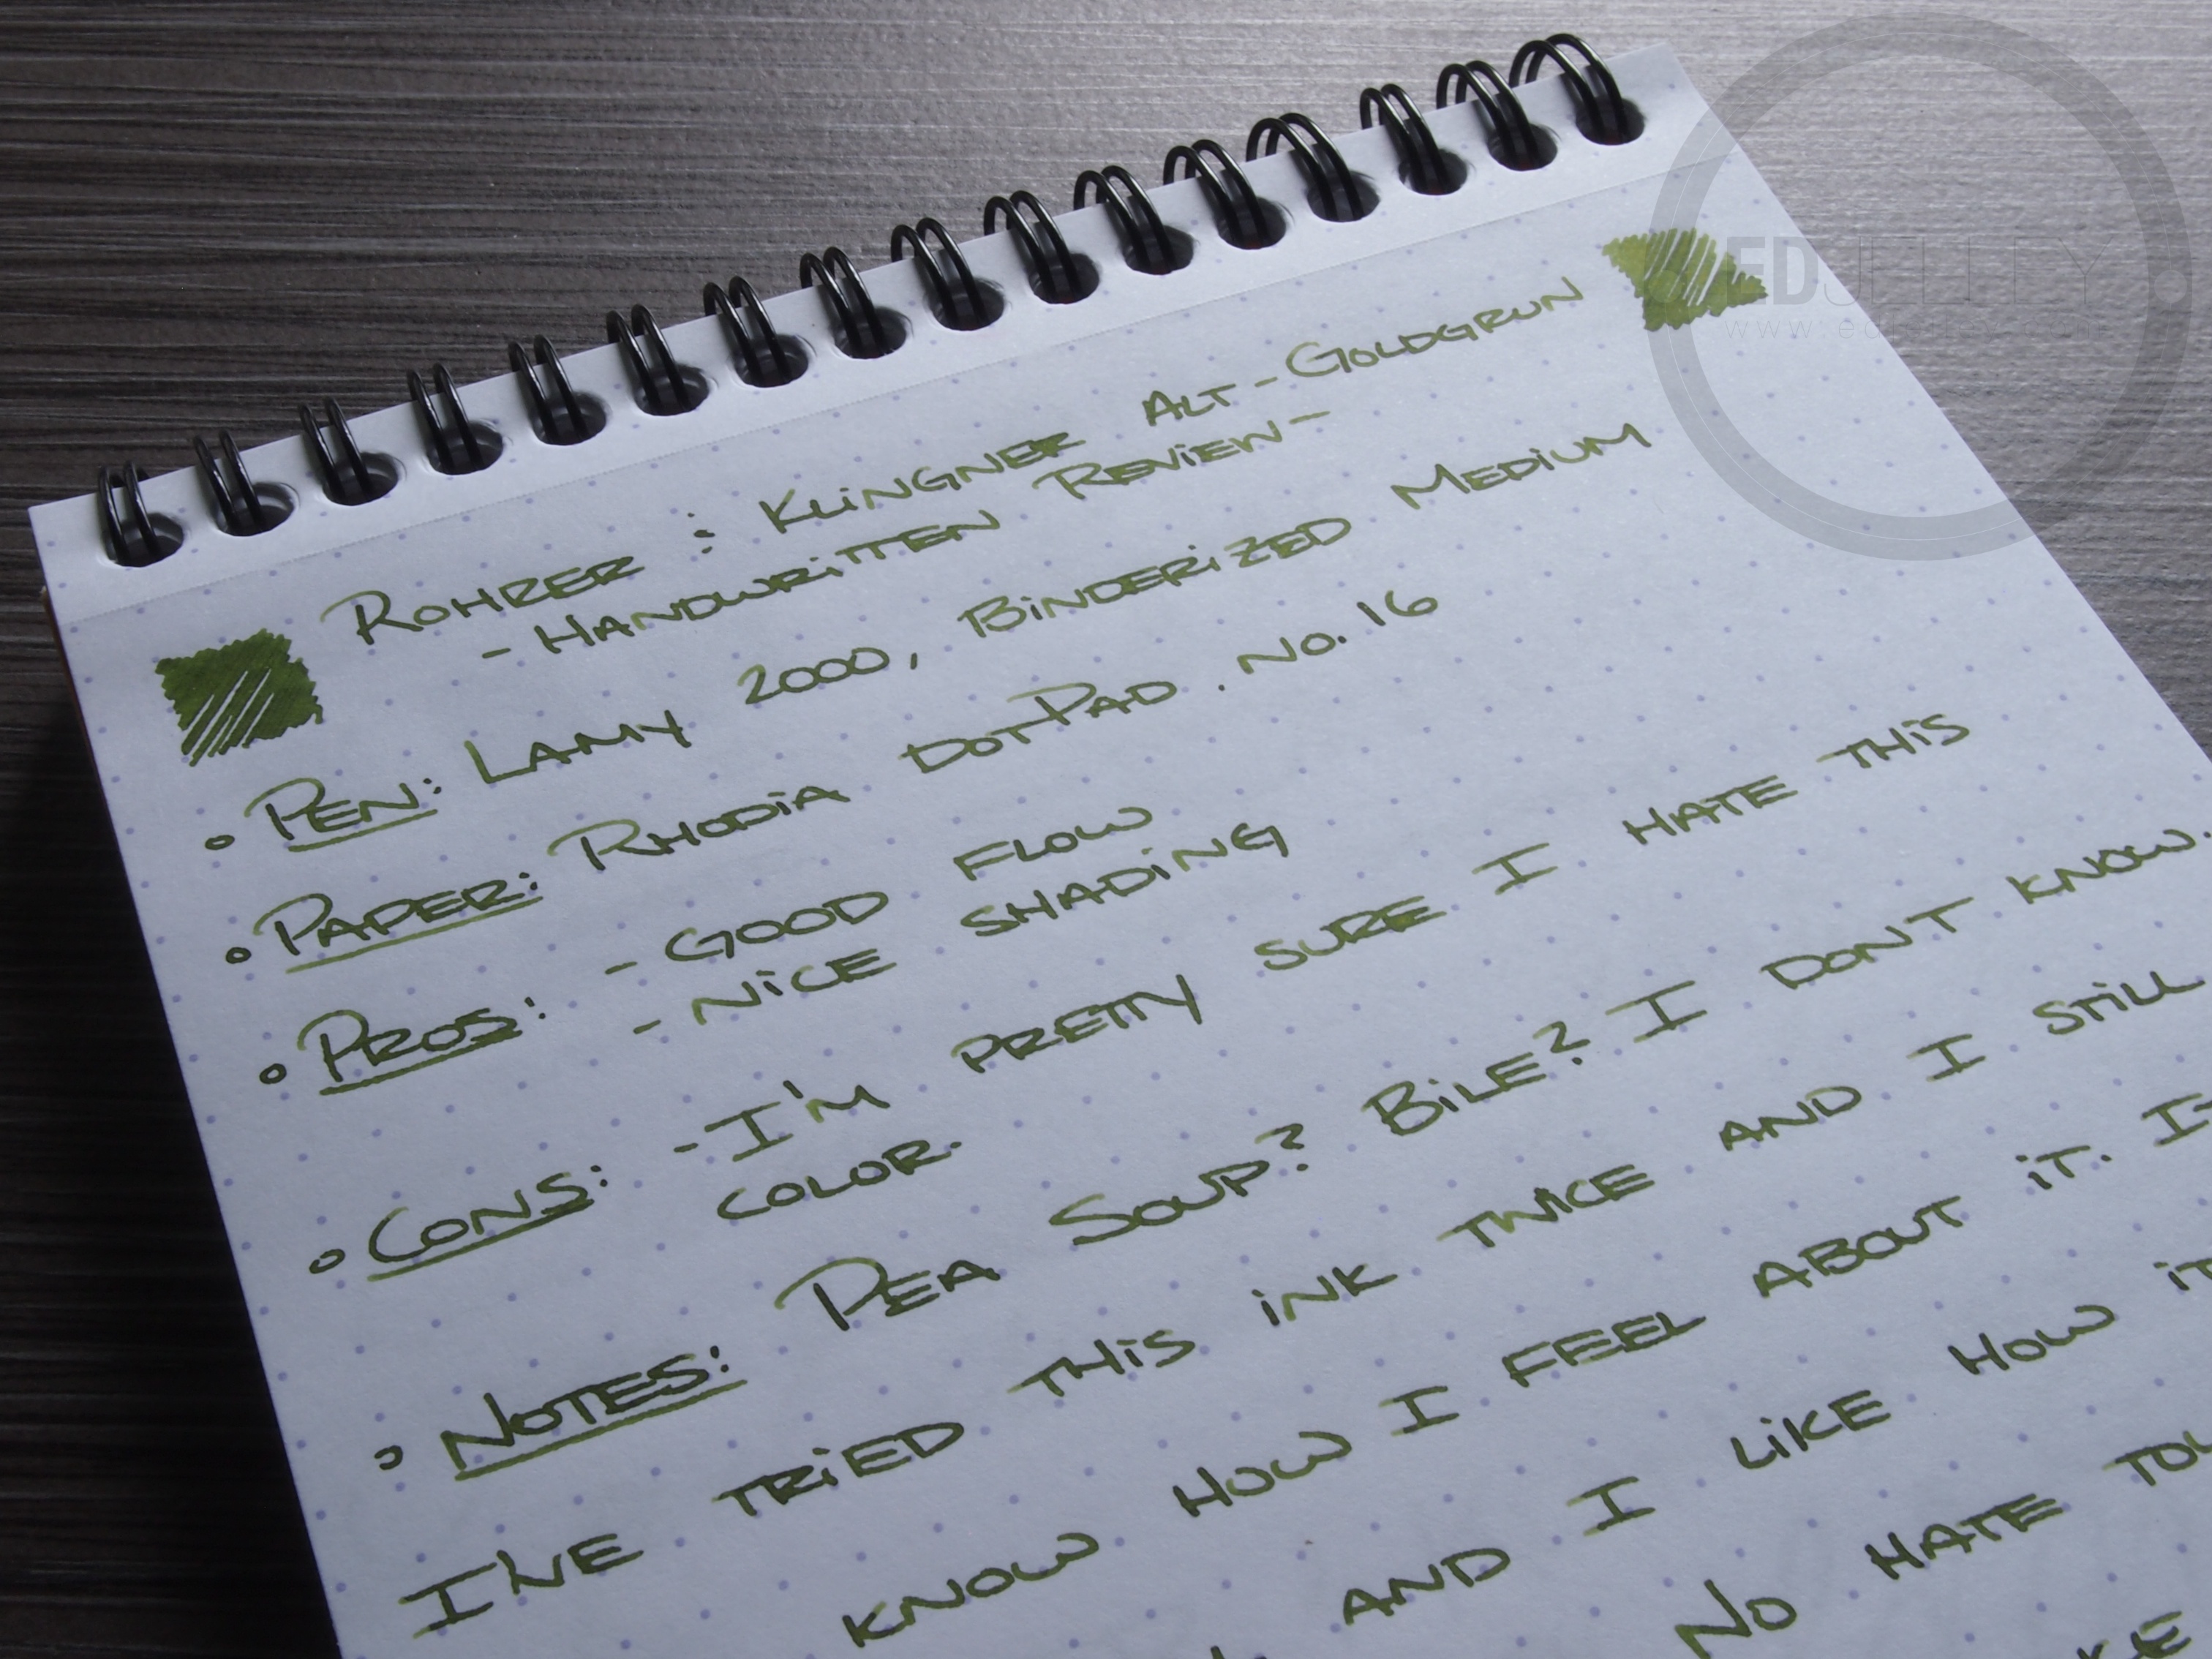 EDJELLEY
ROHRER : KLINGNER ALT-GOLDGRUN
- HANDWRITTEN REVIEW -
PEN: LAMY 2000, BINDERIZED MEDIUM
PAPER: RHODIA DOTPAD. NO. 16
PROS: - GOOD FLOW
- NICE SHADING
CONS: - I'M PRETTY SURE I HATE THIS
COLOR.
NOTES: PEA SOUP? BILE? I DON'T KNOW.
I'VE TRIED THIS INK TWICE AND I STILL
KNOW HOW I FEEL ABOUT IT.
AND I LIKE HOW
NO HATE